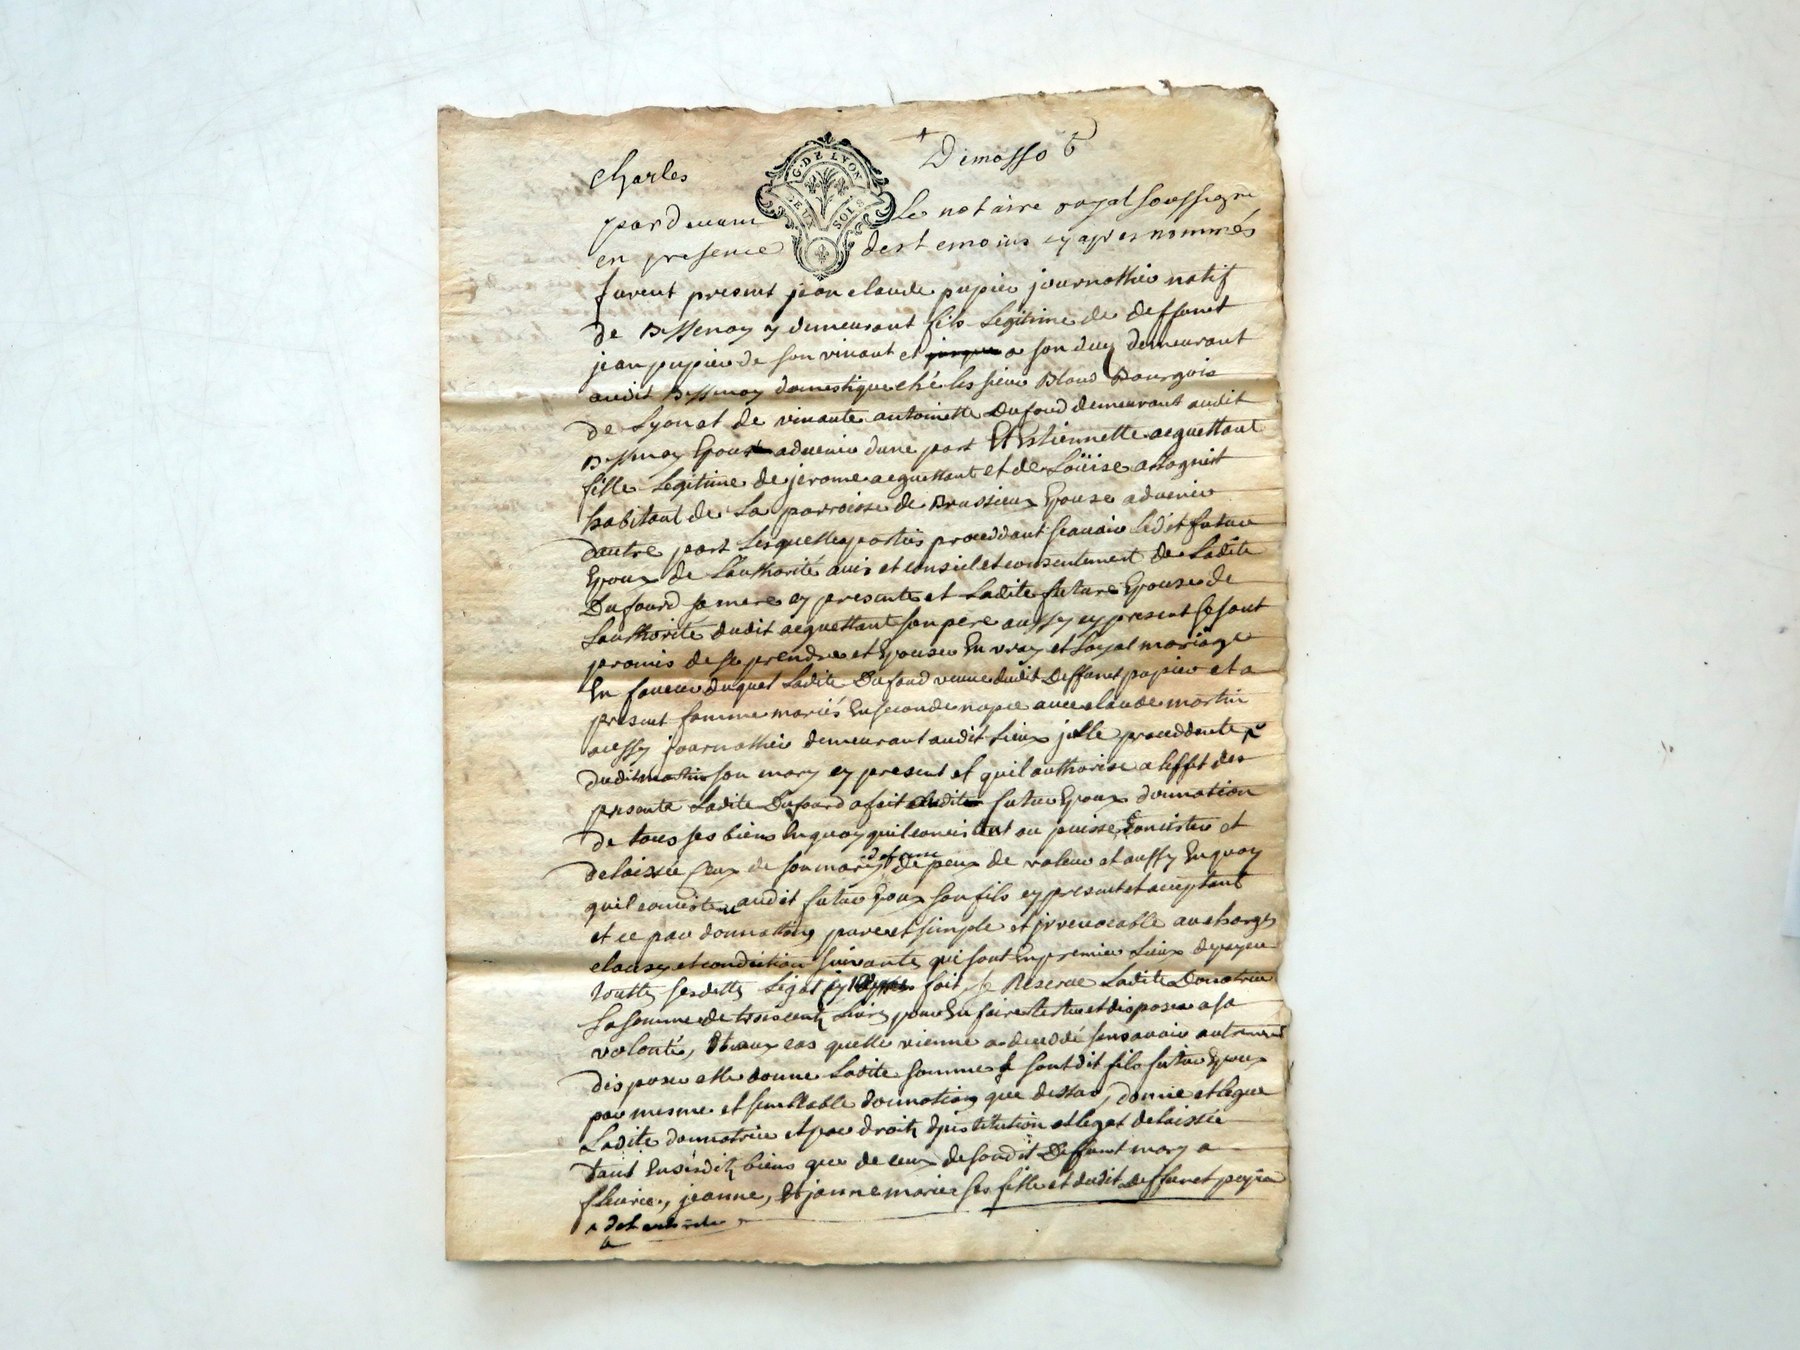 charles
Dimasso 6
G. DE LYON
DEUX SOLS
pardevant Le notaire royal soussigne
en presence des temoins cy apres nommés
furent presens jean claude pupier journallier natif
de Bessenay y demeurant fils Legitime de deffunt
jean pupier de son vivant et a son demeurant
audit Bessenay domestique ché les sieur Bloud Bourgois
de Lyon et de vivante antoinette Dufourd demeurant audit
Bessenay Epoux advenir dune part Et Estiennette acquettant
fille Legitime de jerome acquettant et de Loüise
habitant de La parroisse de Brussieux Epouse advenir
dautre part Lesquelles parties proceddant scavoir Ledit futur
Epoux de Lauthorité avis et conseil et consentement de Ladite
Dufourd sa mere cy presente et Ladite future Epouse de
Lauthorité dudit acquettant son pere aussy cy present se sont
promis de se prendre et Epouser En vray et Loyal mariage
En faveur duquel Ladite Dufourd veuve dudit Deffunt pupier et a
present famme mariés En seconde nopce avec claude martin
aussy journallier demeurant audit Lieux jelle proceddente
dudit martin son mary cy present et quil authorise a Leffet des
presente Ladite Dufourd a fait audit futur Epoux donnation
de tous ses biens En quoy quil concistent ou puisse Concister et
delaissée Ceux de son mary defunt de peux de valeur et aussy En quoy
quil concistent audit futur Epoux son fils cy present et acceptant
et ce par donnation pure et simple et jrrevocable aux charges
clauses et condiction suivante qui sont En premier Lieux de payer
toutte ses dette Legat fait, se Reserve Ladite Donatrice
La somme de trois cent Livre pour En faire tester et disposer a sa
volonté, Et aux cas quelle vienne a deceddé sans avoir autrement
disposer elle donne Ladite somme a sont dit fils futur Epoux
par mesme et semblable donnation que dessus, donne et Legue
Ladite donnatrice et par droit djnstitution et legat delaissée
tant En sesdit biens que de ceux de soudit Deffunt mary a
fleurie, jeanne, Et janne marie ses fille et dudit deffunt pupier
de Lauthorité